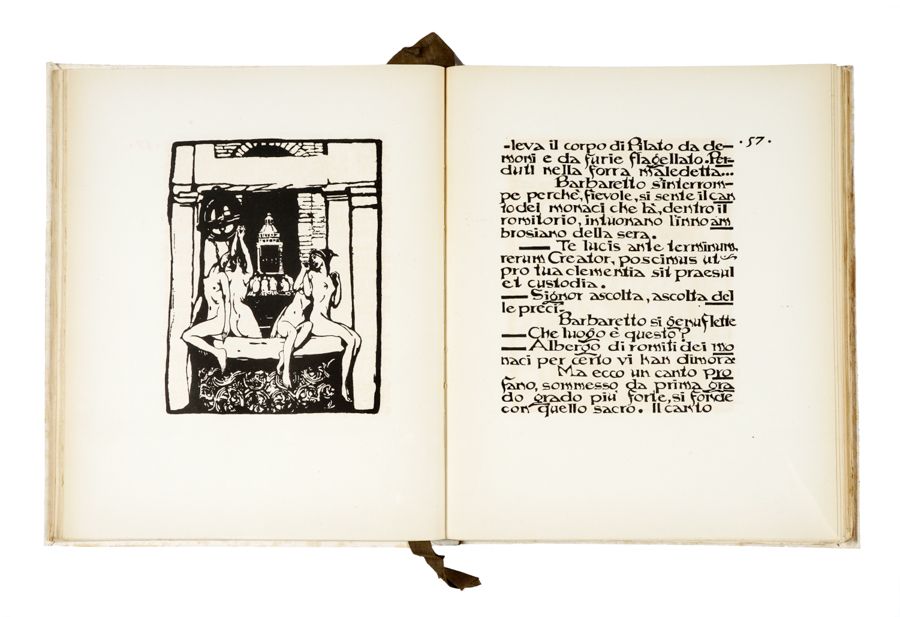 -leva il corpo di Pilato da de- ·57·
moni e da furie flagellato. Per
duti nella forra maledetta...
Barbaretto s'interrom-
pe perchè, fievole, si sente il can
to dei monaci che là, dentro il
romitorio, intuonano l'inno am
brosiano della sera.
— Te lucis ante terminum
rerum Creator, poscimus ut
pro tua clementia sit praesul
et custodia.
— Signor ascolta, ascolta del
le preci,
Barbaretto si genuflette
— Che luogo è questo?
— Albergo di romiti dei mo
naci per certo vi han dimora
Ma ecco un canto pro
fano, sommesso da prima gra
do grado più forte, si fonde
con quello sacro. Il canto